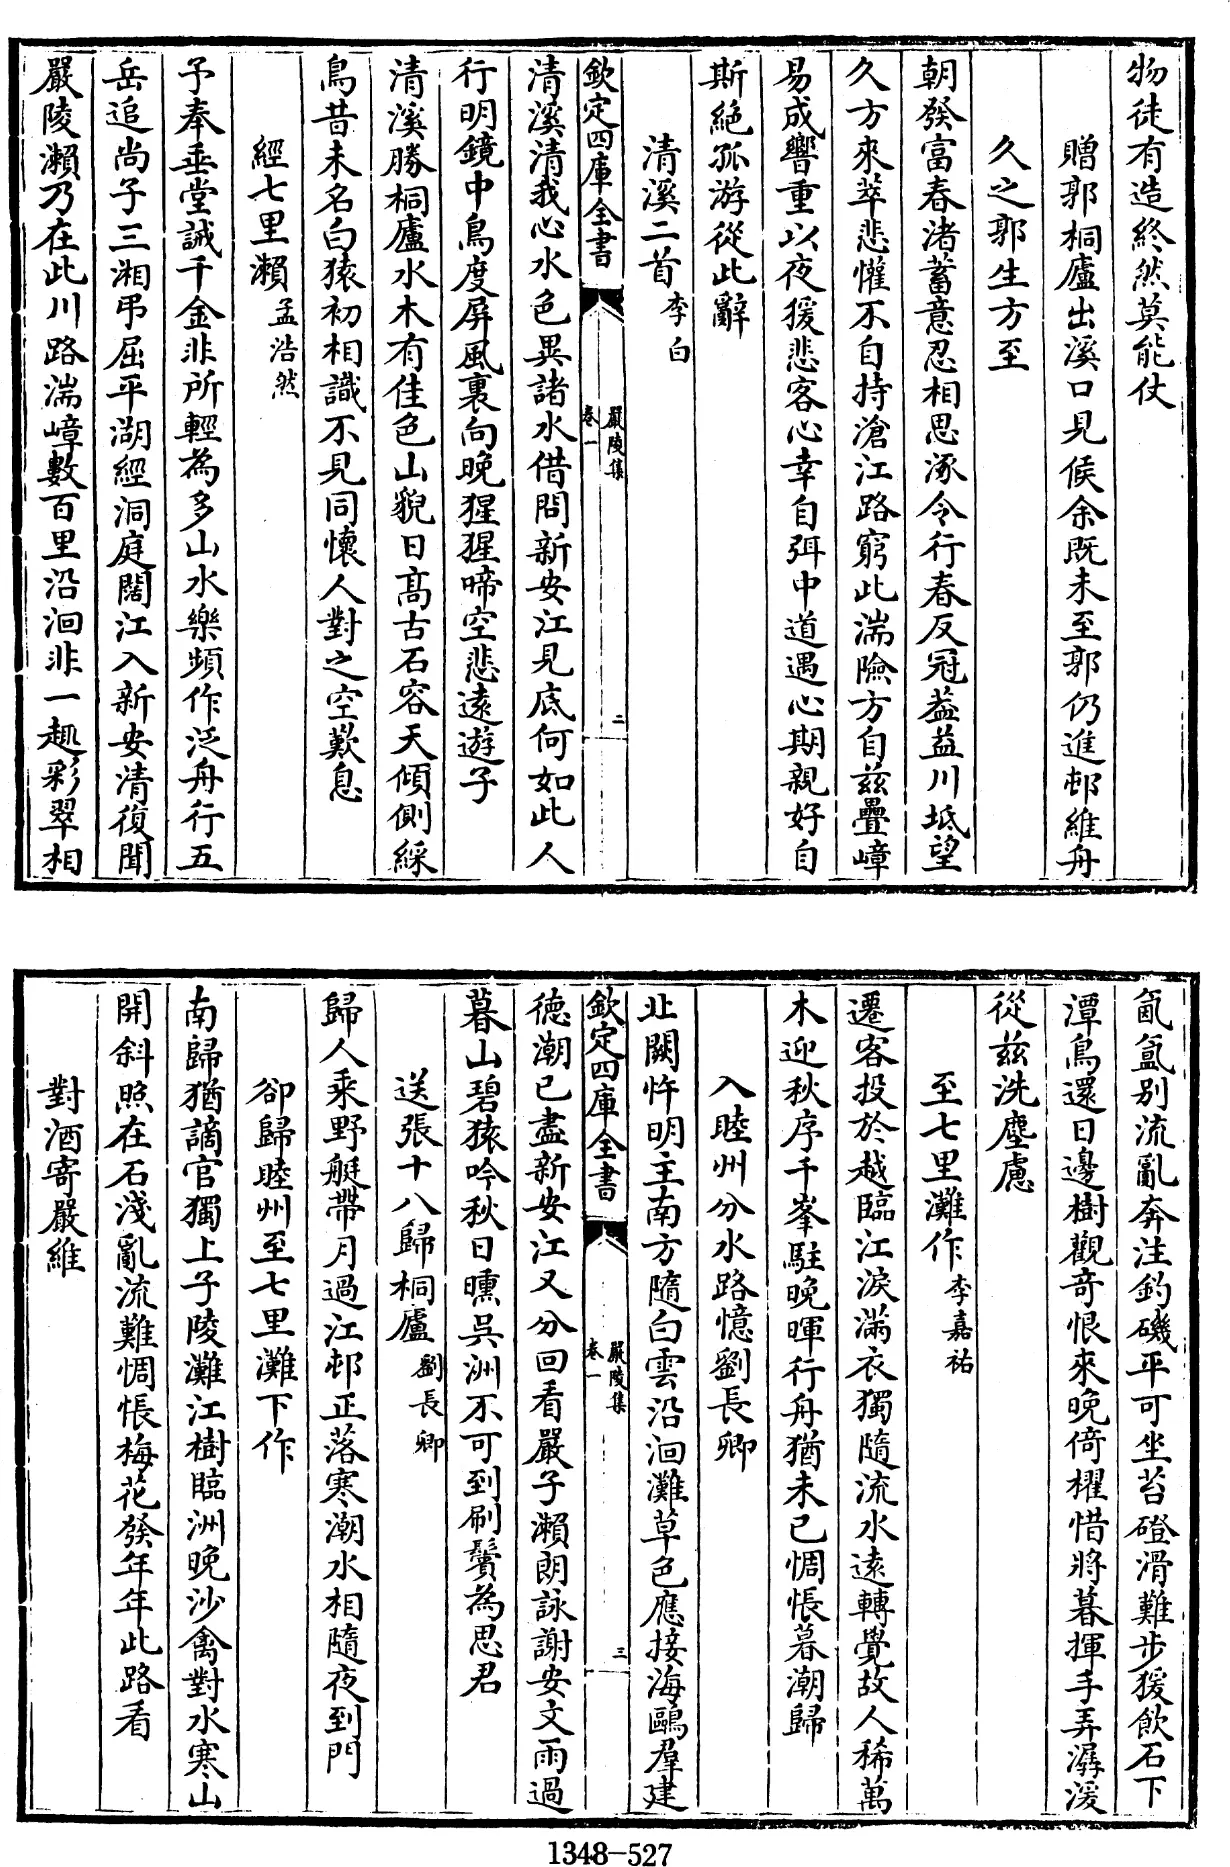 物徒有造終然莫能仗
贈郭桐廬出溪口見候余既未至郭仍進邨維舟
久之郭生方至
朝發富春渚蓄意忍相思涿令行春反冠葢益川坻望
久方來萃悲懽不自持滄江路窮此湍險方自兹疊嶂
易成響重以夜猨悲客心幸自弭中道遇心期親好自
斯絶孤游從此辭
清溪二首李白
欽定四庫全書
嚴陵集
卷一
二
清溪清我心水色異諸水借問新安江見底何如此人
行明鏡中鳥度屏風裏向晚猩猩啼空悲遠遊子
清溪勝桐廬水木有佳色山貌日髙古石容天傾側綵
鳥昔未名白猿初相識不見同懷人對之空歎息
經七里瀨孟浩然
予奉垂堂誡千金非所輕為多山水樂頻作泛舟行五
岳追尚子三湘弔屈平湖經洞庭闊江入新安清復聞
嚴陵瀨乃在此川路湍嶂數百里沿洄非一趣彩翠相
氤氲别流亂奔注釣磯平可坐苔磴滑難步猨飲石下
潭鳥還日邊樹觀竒恨來晚倚櫂惜將暮揮手弄潺湲
從兹洗塵慮
至七里灘作李嘉祐
遷客投於越臨江淚滿衣獨隨流水遠轉覺故人稀萬
木迎秋序千峯駐晩暉行舟猶未已惆悵暮潮歸
入睦州分水路憶劉長卿
北闕忤明主南方隨白雲沿洄灘草色應接海鷗羣建
欽定四庫全書
嚴陵集
卷一
三
德潮已盡新安江又分回看嚴子瀨朗詠謝安文雨過
暮山碧猿吟秋日曛吳洲不可到刷鬢為思君
送張十八歸桐廬劉長卿
歸人乘野艇帶月過江邨正落寒潮水相隨夜到門
卻歸睦州至七里灘下作
南歸猶謫官獨上子陵灘江樹臨洲晚沙禽對水寒山
開斜照在石淺亂流難惆悵梅花發年年此路看
對酒寄嚴維
1348-527